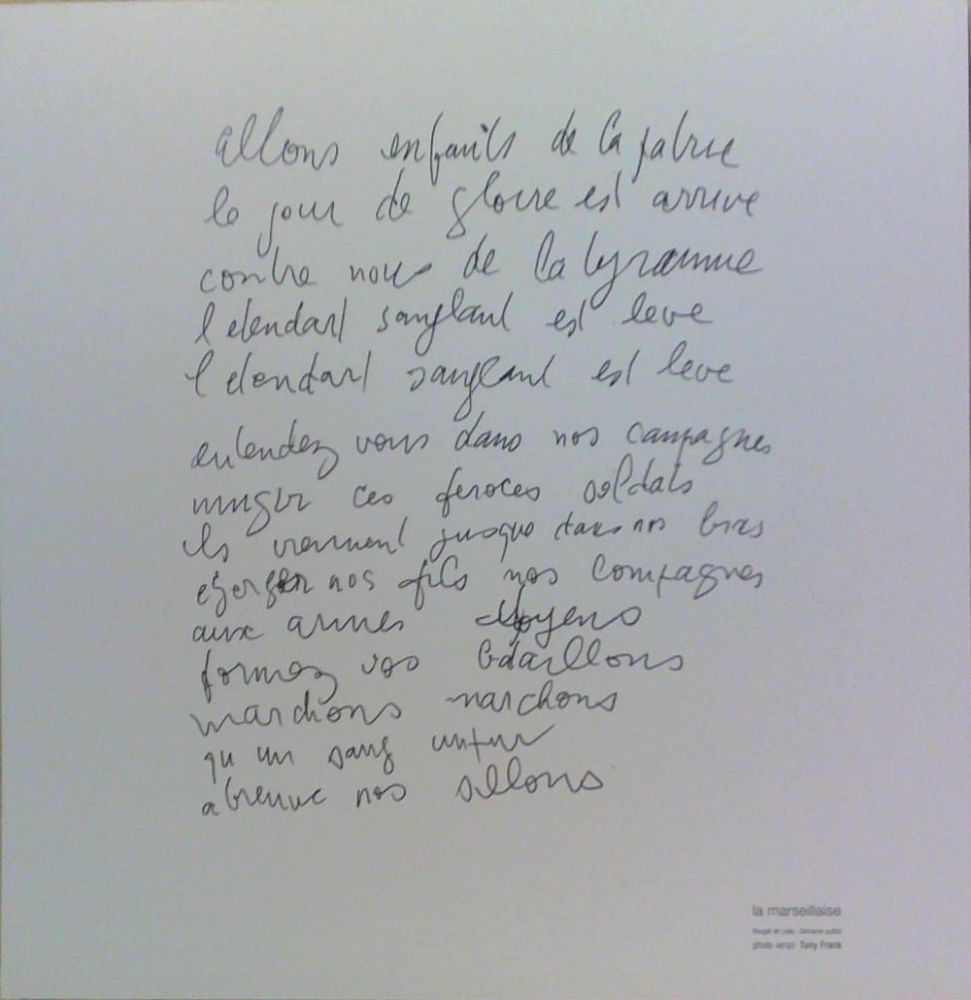 allons enfants de la patrie
le jour de gloire est arrive
contre nous de la tyrannie
l etendart sanglant est leve
l etendart sanglant est leve
entendez vous dans nos campagnes
mugir ces feroces soldats
ils viennent jusque dans nos bras
egorger nos fils nos compagnes
aux armes citoyens
formez vos bataillons
marchons marchons
qu un sang impur
abreuve nos sillons
la marseillaise
Rouget de Lisle - Domaine public
photo verso : Tony Frank